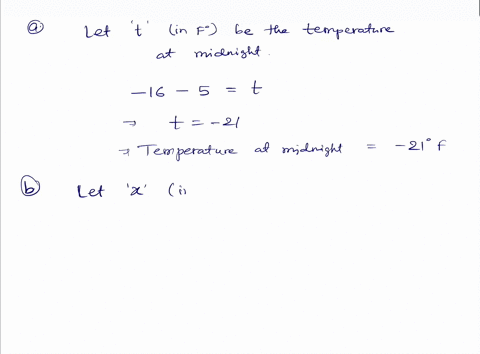 ⓐ Let 't' (in F°) be the temperature
at midnight.
-16 - 5 = t
⇒ t = -21
⇒ Temperature at midnight = -21° F
ⓑ Let 'x' (i